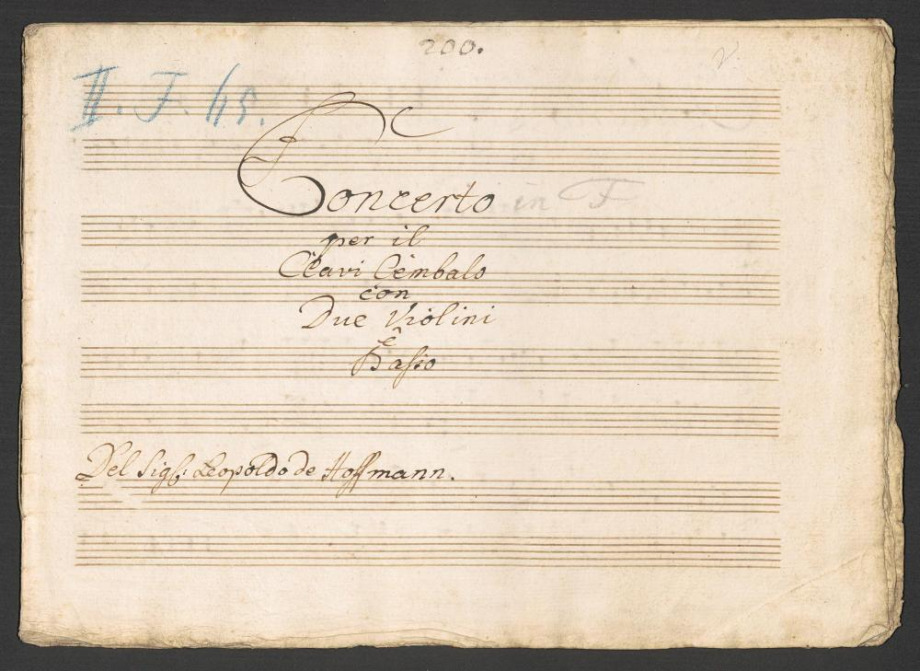 200.
II. F. 45.
Concerto in F
per il
Clavi Cembalo
con
Due Violini
e
Basso
Del Sigl: Leopoldo de Hoffmann.